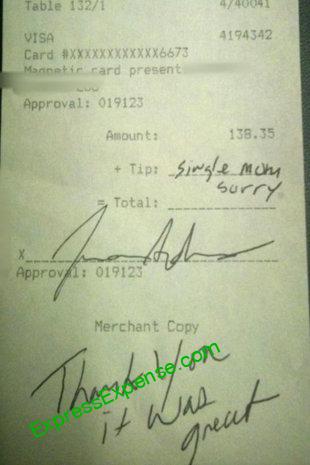 Table 132/1 4/40041
VISA 4194342
Card #XXXXXXXXXXXX6673
Magnetic card present
Approval: 019123
Amount: 138.35
+ Tip: single mom
sorry
= Total:
X
Approval: 019123
Merchant Copy
Thank You
ExpressExpense.com
it was
great